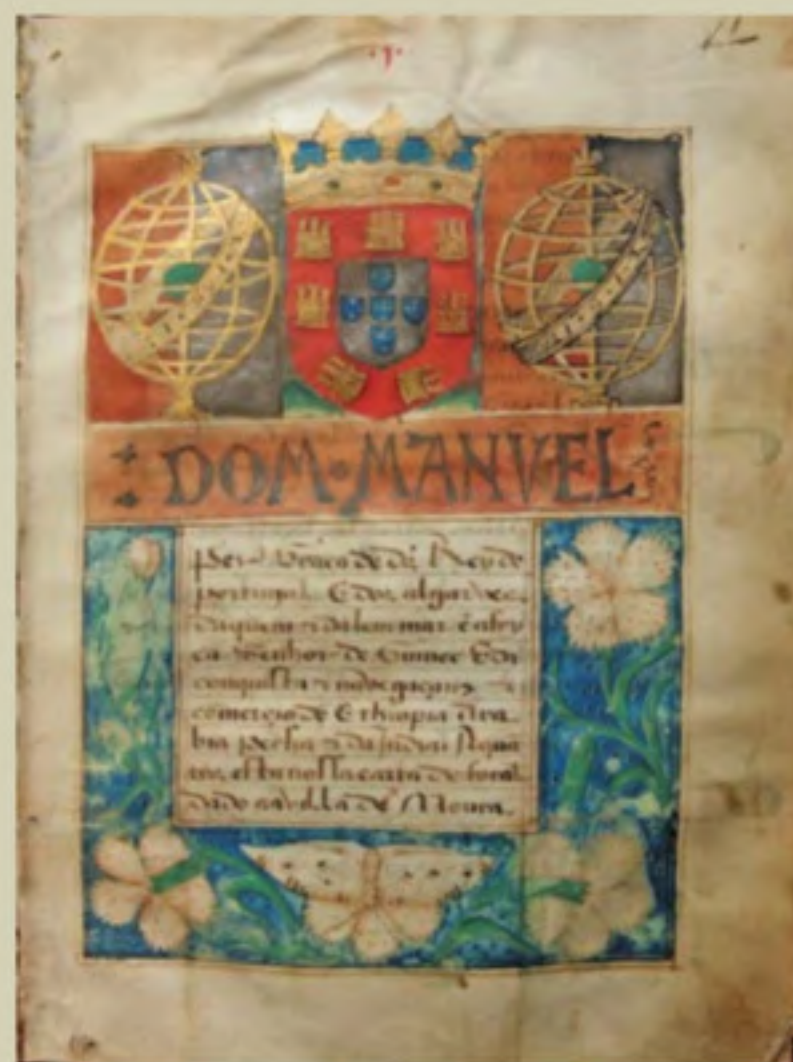 DOM · MANVEL
per graça de ds Rey de
portugal E dos algarves
daquem z dalem mar ẽ afry
ca Senhor de Guinee E da
conquista z navegaçam z
comercio de Ethiopia Ara
bia persia z da India A qua
tos esta nossa carta de foral
dado aa villa de Moura